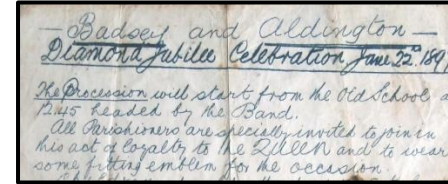 — Badsey and Aldington —
Diamond Jubilee Celebration June 22nd 189
The Procession will start from the Old School a
12.45 headed by the Band.
All Parishioners are specially invited to join in
this act of loyalty to the QUEEN and to wear
some fitting emblem for the occasion.